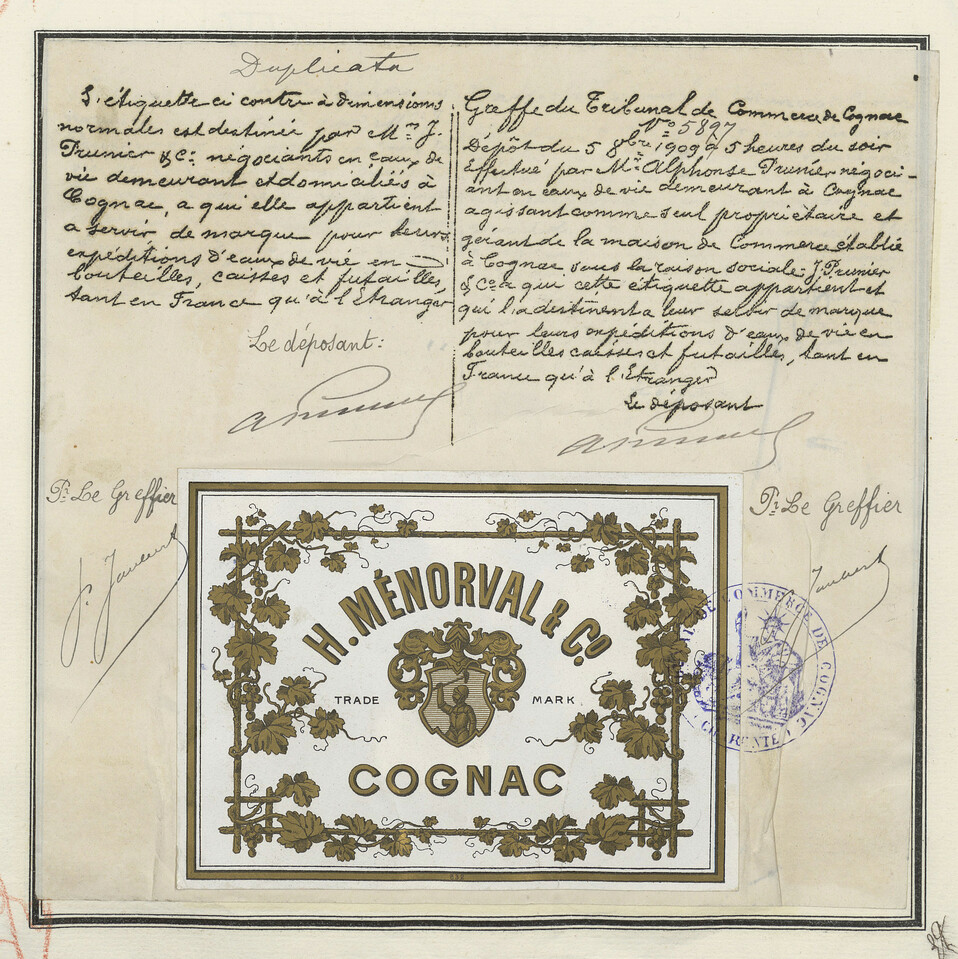 Duplicata
L'étiquette ci contre à dimensions
normales est destinée par Mr. J.
Prunier & Cie négociants en eaux de
vie demeurant et domiciliés à
Cognac, a qui elle appartient
a servir de marque pour leurs
expéditions d'eaux de vie en
bouteilles, caisses et futailles,
tant en France qu'à l'Etranger
Le déposant:
Greffe du Tribunal de Commerce de Cognac
No 5897
Dépôt du 5 8bre 1909 à 5 heures du soir
Effectué par Mr. Alphonse Prunier négoci-
ant en eaux de vie demeurant à Cognac
agissant comme seul propriétaire et
gérant de la maison de Commerce établie
à Cognac sous la raison sociale J. Prunier
& Co a qui cette étiquette appartient et
qui la destinent a leur servir de marque
pour leurs expéditions d'eaux de vie en
bouteilles caisses et futailles, tant en
France qu'à l'Etranger
Le déposant
Pr. Le Greffier
Pr. Le Greffier
H. MÉNORVAL & Co.
TRADE MARK
COGNAC
DE COMMERCE DE COGNAC